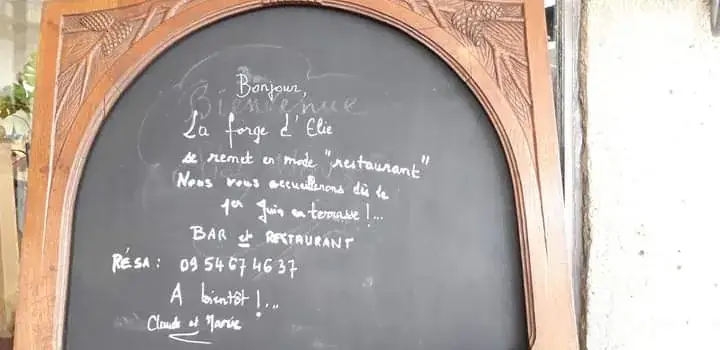 Bonjour,
Bienvenue
La forge d'Elie
se remet en mode "restaurant"
Nous vous accueillerons dès le
1er Juin en terrasse !...
BAR et RESTAURANT
RÉSA : 09 54 67 46 37
A bientôt !...
Claude et Marie